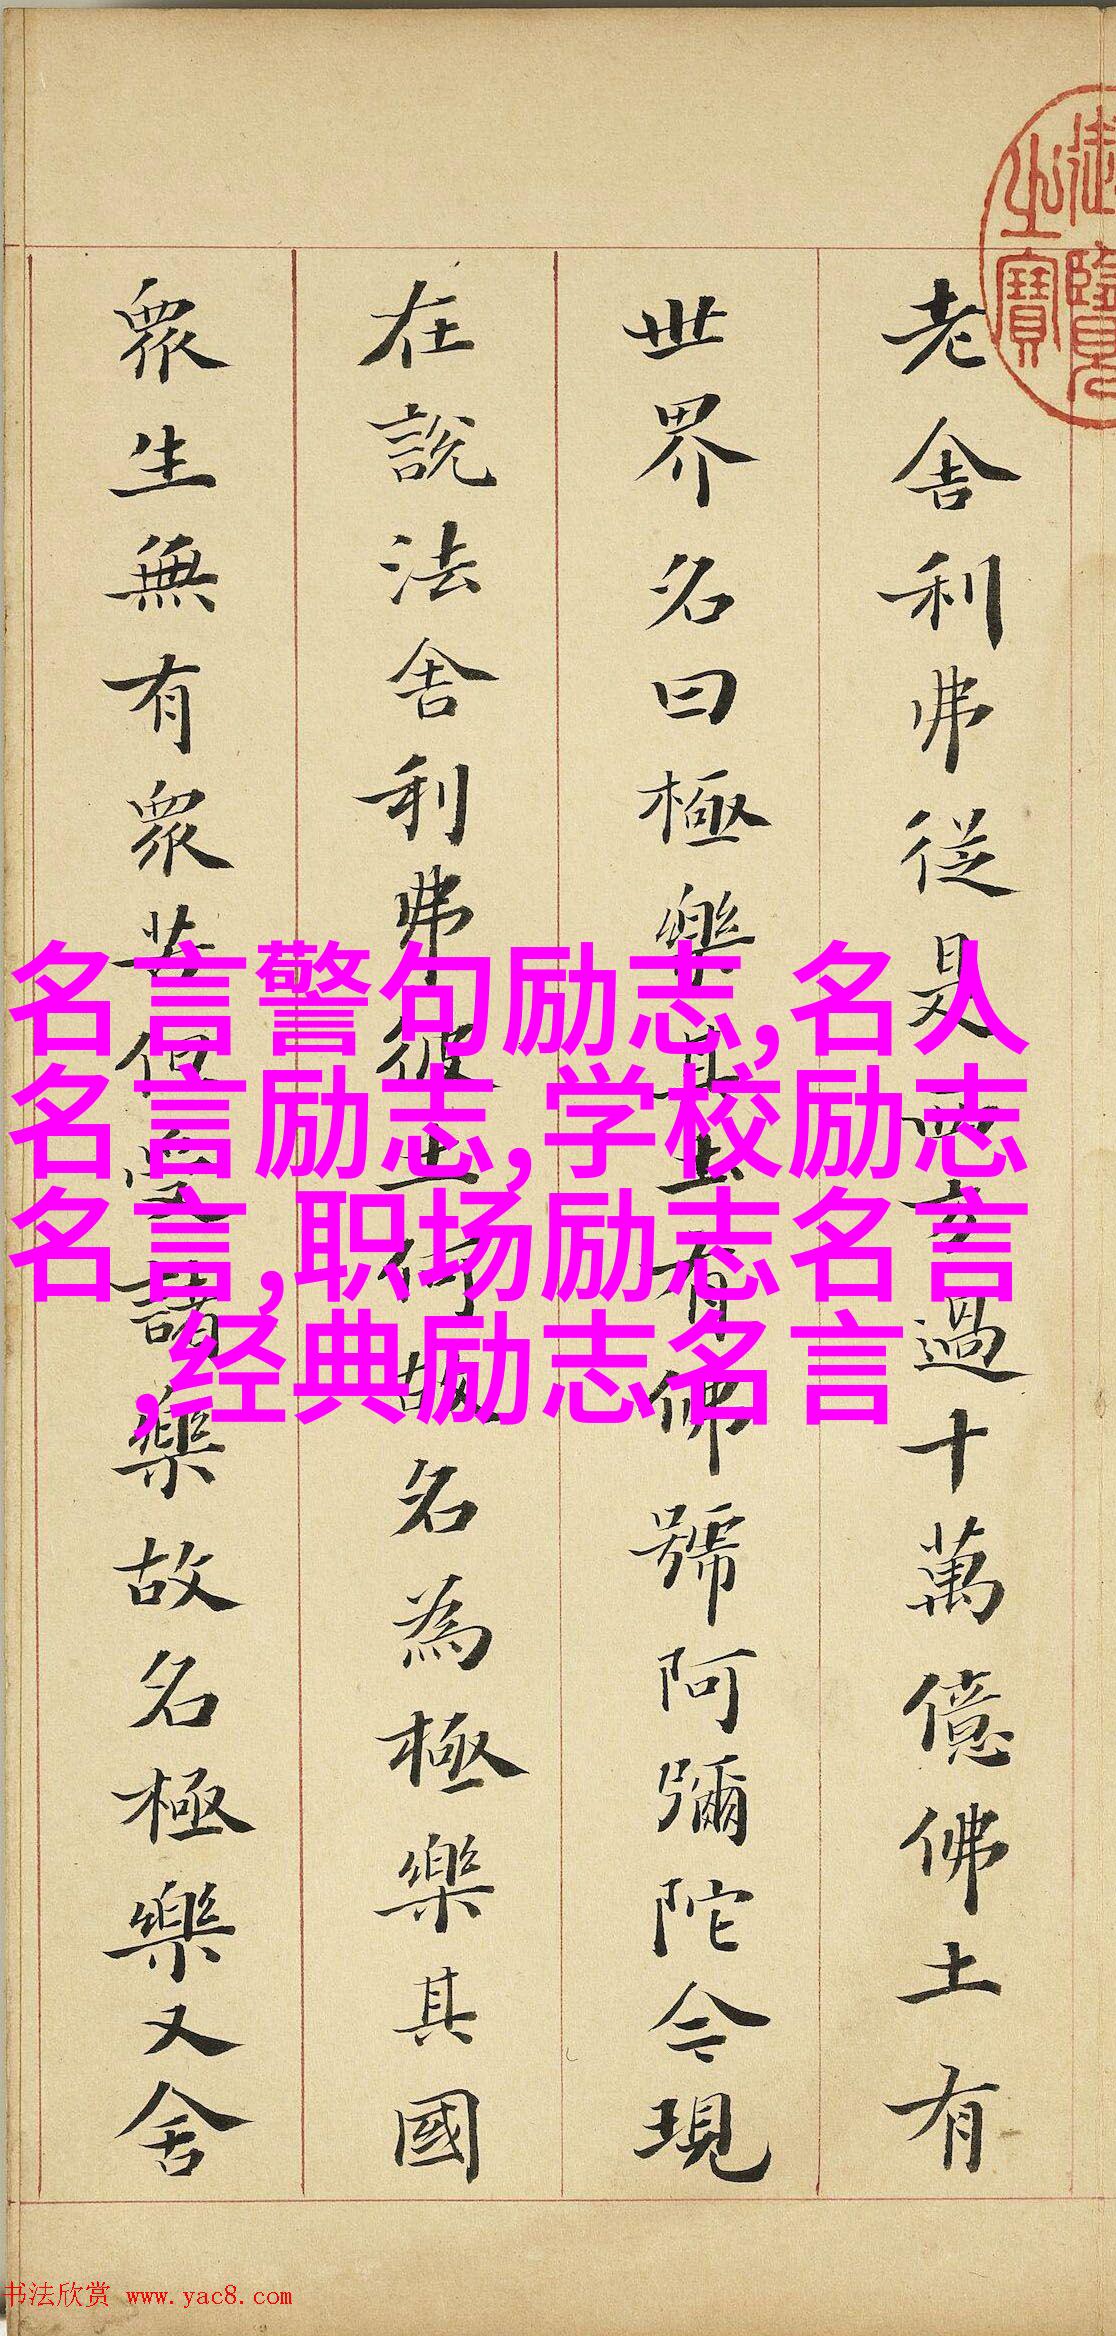 御覽
之寶
老舍利弗從是西方過十萬億佛土有
世界名曰極樂其土有佛號阿彌陀今現
在說法舍利弗彼土何故名為極樂其國
眾生無有眾苦但受諸樂故名極樂又舍
名言警句励志,名人
名言励志,学校励志
名言,职场励志名言
,经典励志名言
书法欣赏 www.yac8.com